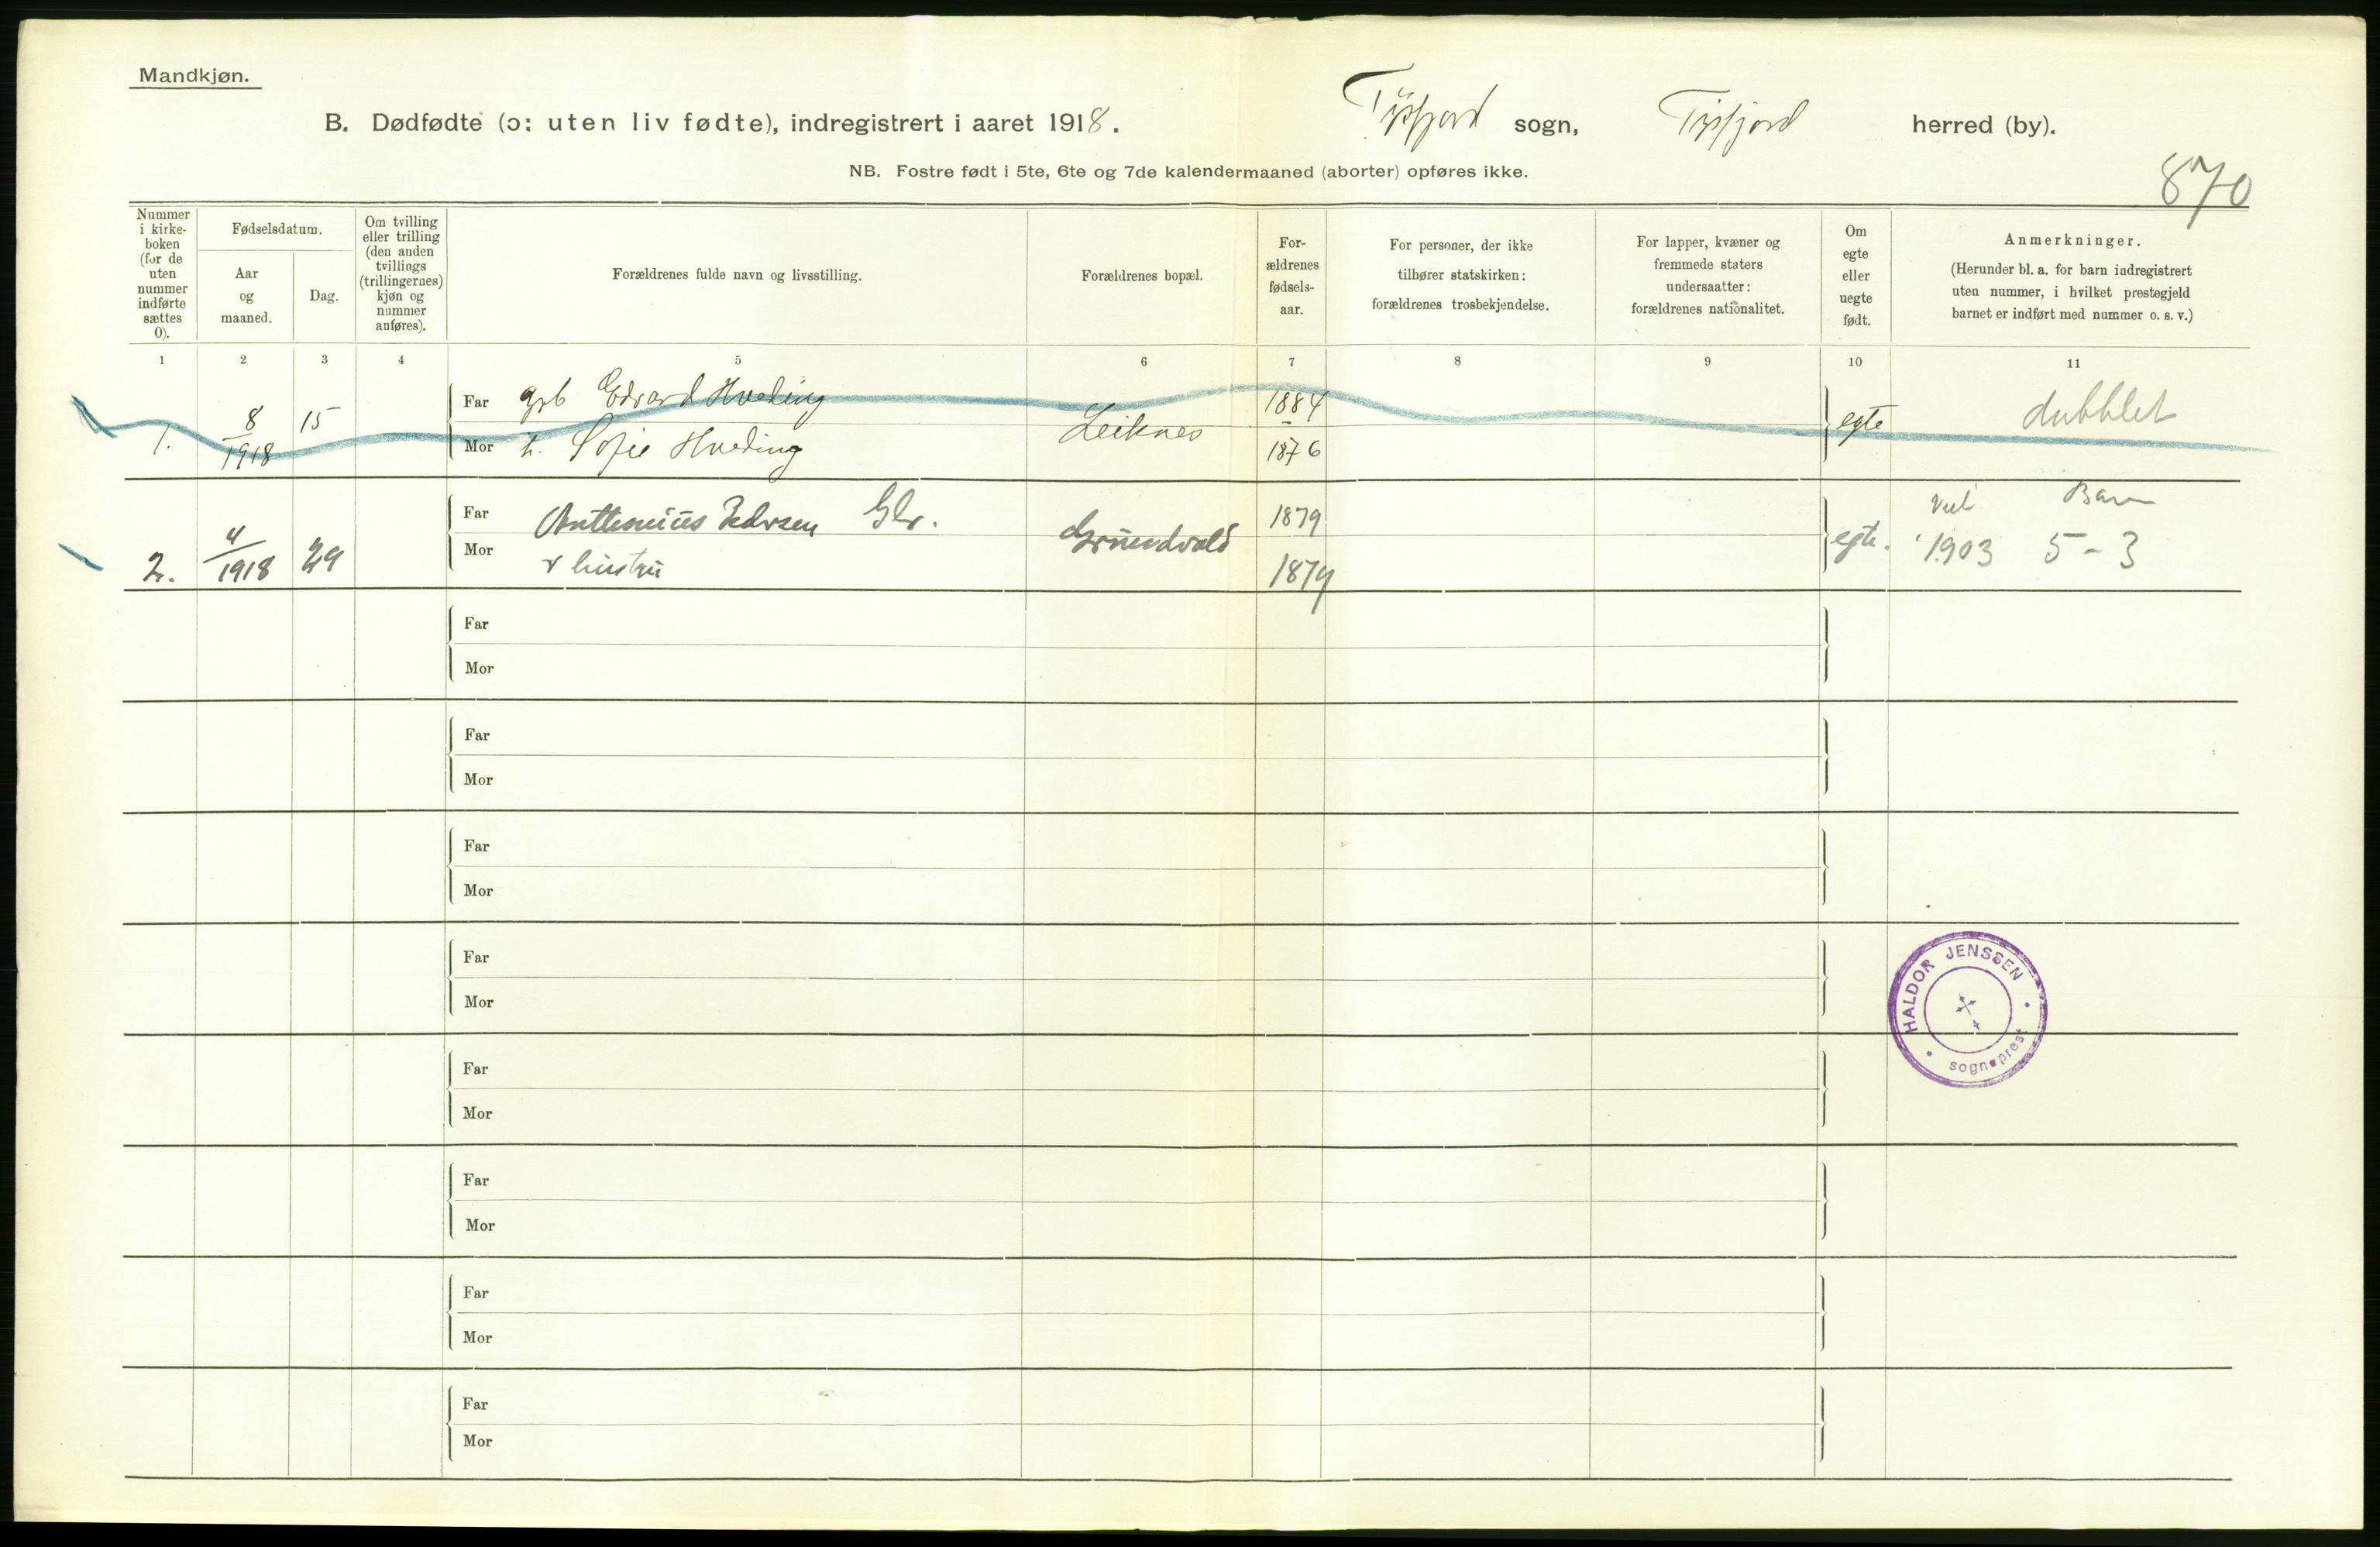 Mandkjøn.
B. Dødfødte (ɔ: uten liv fødte), indregistrert i aaret 1918. Tysfjord sogn, Tysfjord herred (by).
NB. Fostre født i 5te, 6te og 7de kalendermaaned (aborter) opføres ikke.
870
Nummer
i kirke-
boken
(for de
uten
nummer
indførte
sættes
0).
Fødselsdatum.
Aar
og
maaned.
Dag.
Om tvilling
eller trilling
(den anden
tvillings
(trillingernes)
kjøn og
nummer
anføres).
Forældrenes fulde navn og livsstilling.
Forældrenes bopæl.
For-
ældrenes
fødsels-
aar.
For personer, der ikke
tilhører statskirken:
forældrenes trosbekjendelse.
For lapper, kvæner og
fremmede staters
undersaatter:
forældrenes nationalitet.
Om
egte
eller
uegte
født.
Anmerkninger.
(Herunder bl. a. for barn indregistrert
uten nummer, i hvilket prestegjeld
barnet er indført med nummer o. s. v.)
1 2 3 4 5 6 7 8 9 10 11
1. 8/1918 15 Far Edvard Hveding Leiknes 1884 egte dubblet
Mor h. Sofie Hveding 1876
2. 4/1918 29 Far Anthonius Pedersen Gbr. Grunvald 1879 egte. Viet Barn
Mor v hustru 1879 1903 5-3
Far
Mor
Far
Mor
Far
Mor
Far
Mor
HALDOR JENSSEN
sogneprest
Far
Mor
Far
Mor
Far
Mor
Far
Mor